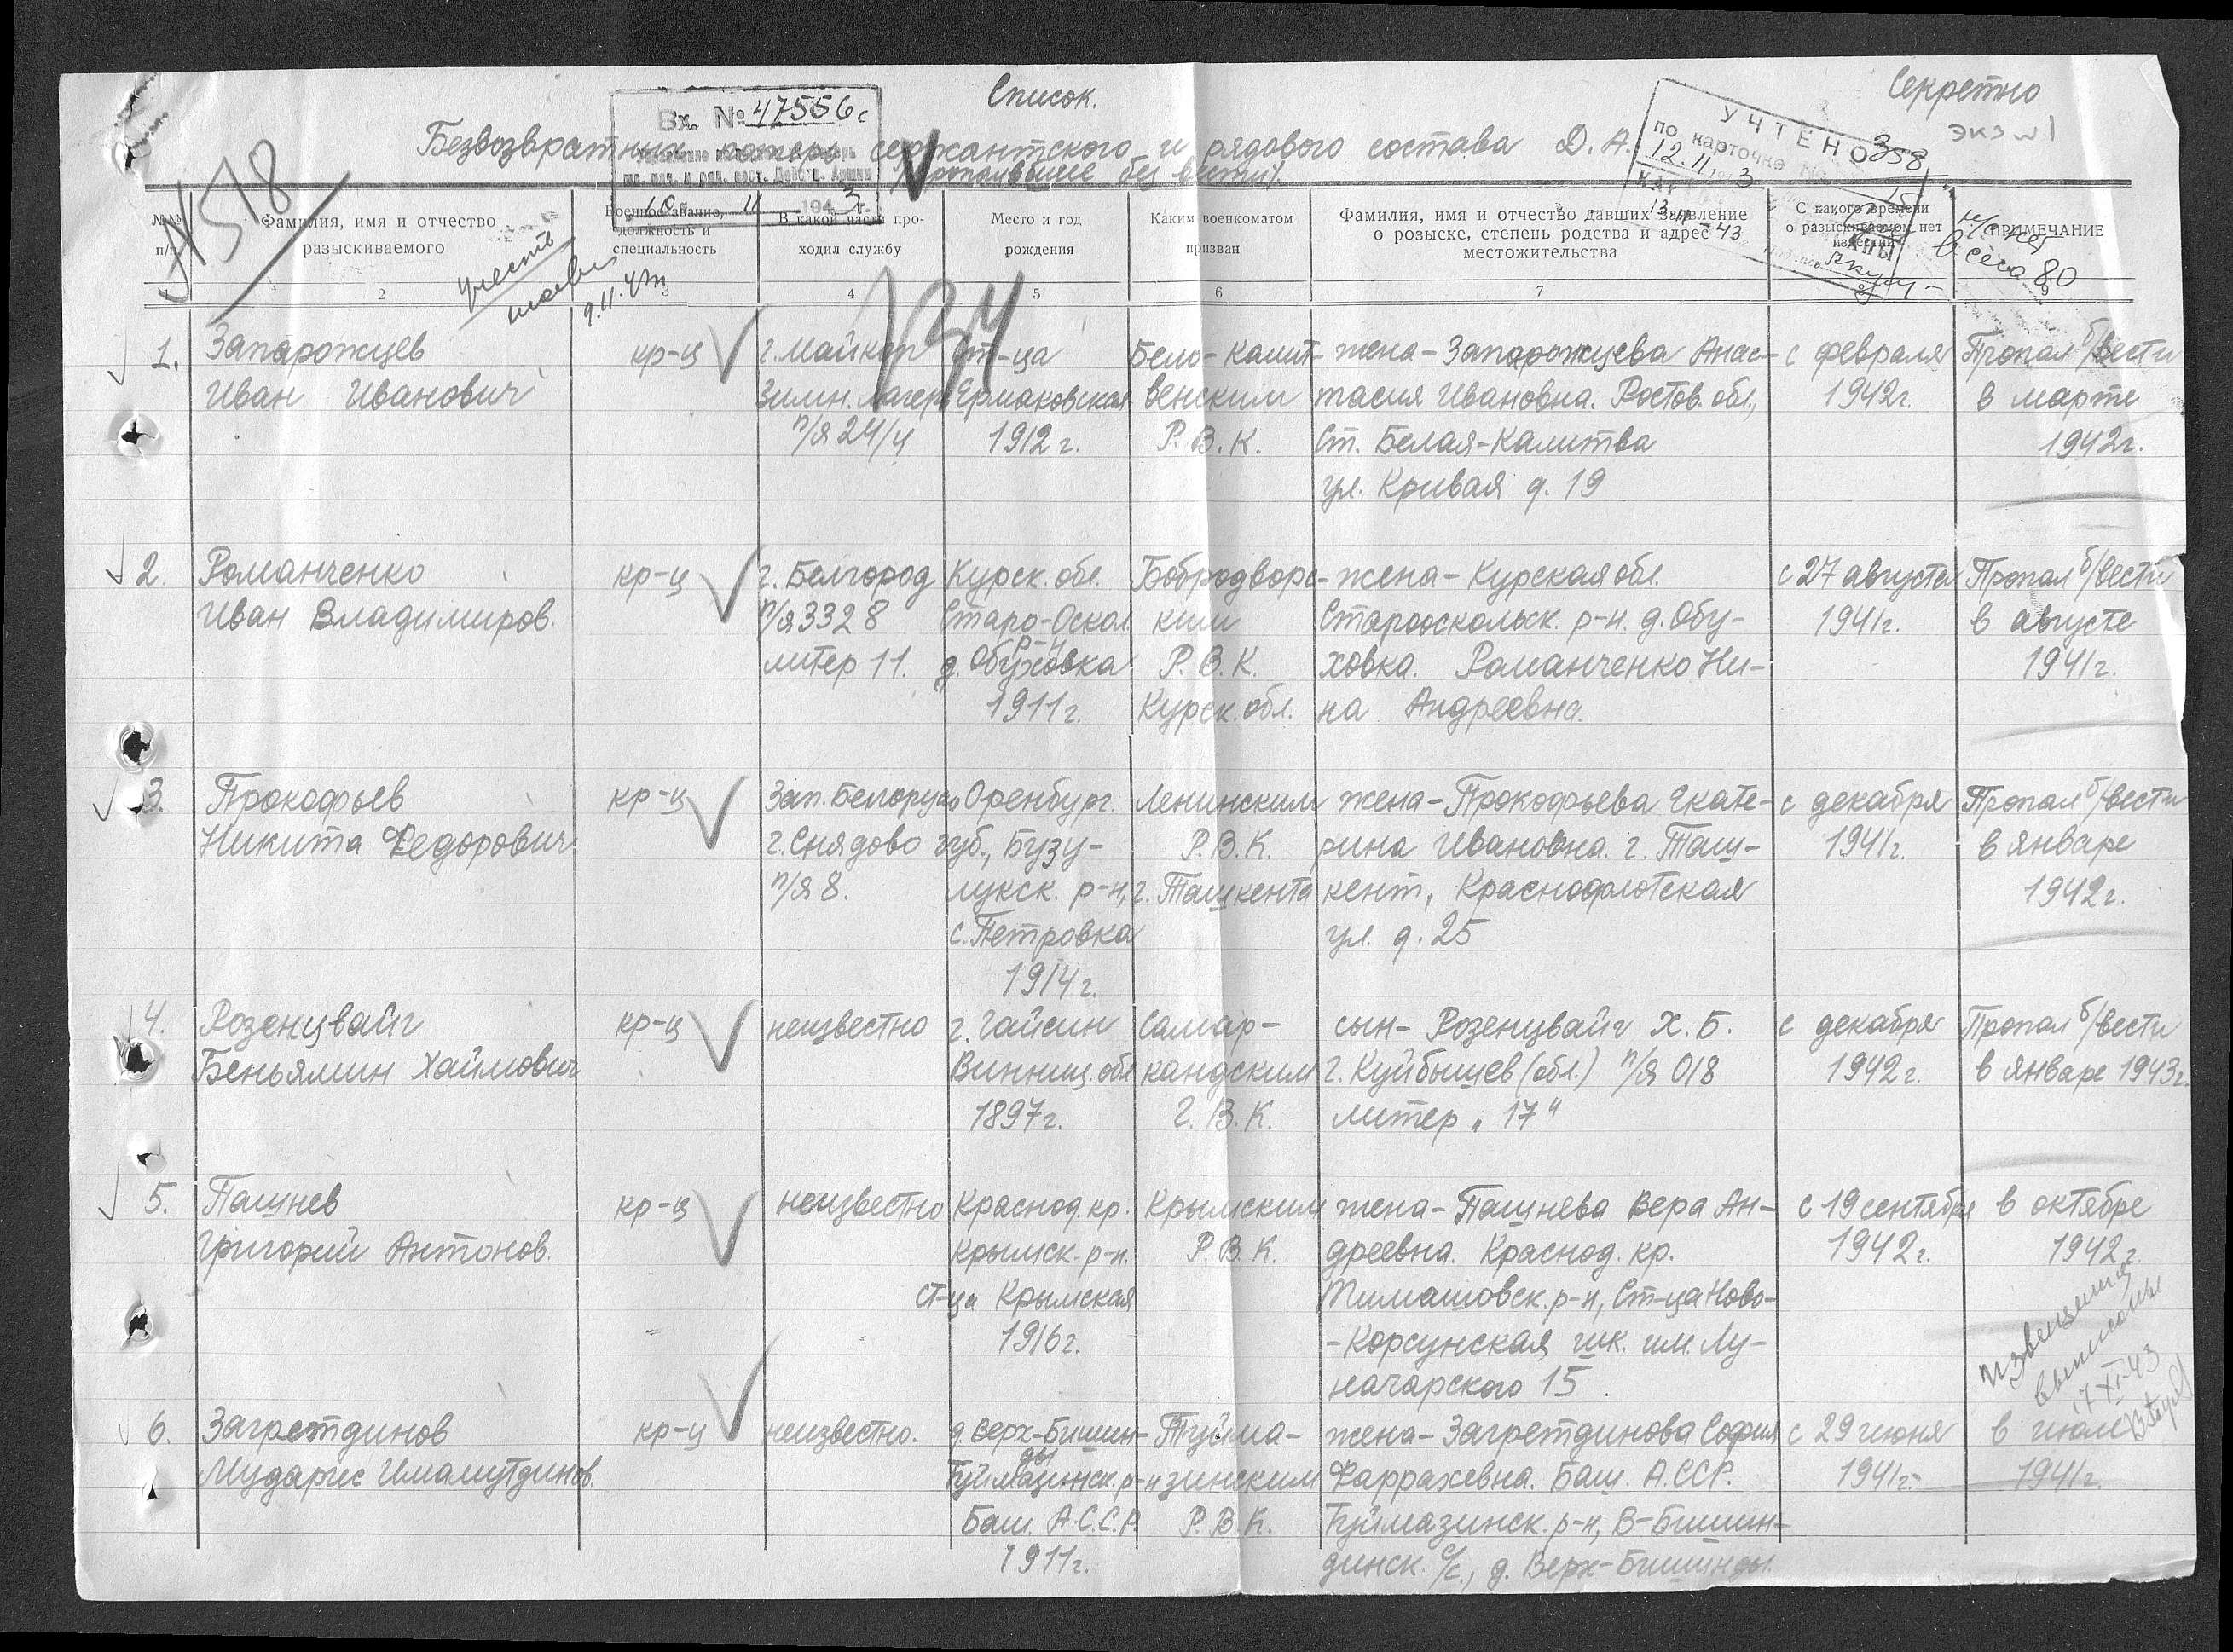 Список.
Секретно
экз №1
Вх. № 47556с
Безвозвратных потерь сержантского и рядового состава Д. А.
/пропавшие без вести/.
10 11 1943 г.
УЧТЕНО
по карточке № 358
12.11. 3
№518
учесть
9.11.43
134
№№ п/п
Фамилия, имя и отчество разыскиваемого
Военное звание, должность и специальность
В какой части проходил службу
Место и год рождения
Каким военкоматом призван
Фамилия, имя и отчество давших заявление о розыске, степень родства и адрес местожительства
С какого времени о разыскиваемом нет известий
ПРИМЕЧАНИЕ
2 3 4 5 6 7 8 9
1.
Запарожцев
Иван Иванович
кр-ц
г. Майкоп
Зимн. лагерь
п/я 24/4
ст-ца
Ермаковская
1912 г.
Бело-Калит-
венским
Р. В. К.
жена - Запарожцева Анас-
тасия Ивановна. Ростов. обл.,
Ст. Белая-Калитва
ул. Кривая д. 19
с февраля
1942г.
Пропал б/вести
в марте
1942г.
2.
Романченко
Иван Владимиров.
кр-ц
г. Белгород
п/я 3328
литер 11.
Курск. обл.
Старо-Оскол.
р-н
д. Обуховка
1911г.
Бобродворс-
ким
Р. В. К.
Курск. обл.
жена - Курская обл.
Старооскольск. р-н. д. Обу-
ховка. Романченко Ни-
на Андреевна.
с 27 августа
1941г.
Пропал б/вести
в августе
1941г.
3.
Прокофьев
Никита Федорович
кр-ц
Зап. Белорус.
г. Снядово
п/я 8.
Оренбург.
губ., Бузу-
лукск. р-н,
с. Петровка
1914г.
Ленинским
Р. В. К.
г. Ташкента
жена - Прокофьева Екате-
рина Ивановна. г. Таш-
кент, Краснофлотская
ул. д. 25
с декабря
1941г.
Пропал б/вести
в январе
1942г.
4.
Розенцвайг
Беньямин Хаймович
кр-ц
неизвестно
г. Гайсин
Винниц. обл
1897г.
Самар-
кандским
Г. В. К.
сын - Розенцвайг Х. Б.
г. Куйбышев (обл.) п/я 018
литер „17"
с декабря
1942г.
Пропал б/вести
в январе 1943г.
5.
Пашнев
Григорий Антонов.
кр-ц
неизвестно
Краснод. кр.
Крымск. р-н.
ст-ца Крымская
1916г.
Крымским
Р. В. К.
жена - Пашнева Вера Ан-
дреевна. Краснод. кр.
Тимашовск. р-н, Ст-ца Ново-
-Корсунская шк. им. Лу-
начарского 15.
с 19 сентября
1942г.
в октябре
1942г.
извещения
высланы
17 XI-43
6.
Загретдинов
Мударис Имамутдинов.
кр-ц
неизвестно.
д. Верх-Бишин-
ды
Туймазинск. р-н
Баш. А.С.С.Р.
1911г.
Туйма-
зинским
Р. В. К.
жена - Загретдинова София
Фаррахевна. Баш. А.ССР.
Туймазинск. р-н, В-Бишин-
динск. с/с., д. Верх-Бишинды.
с 29 июня
1941г.
в июле
1941г.